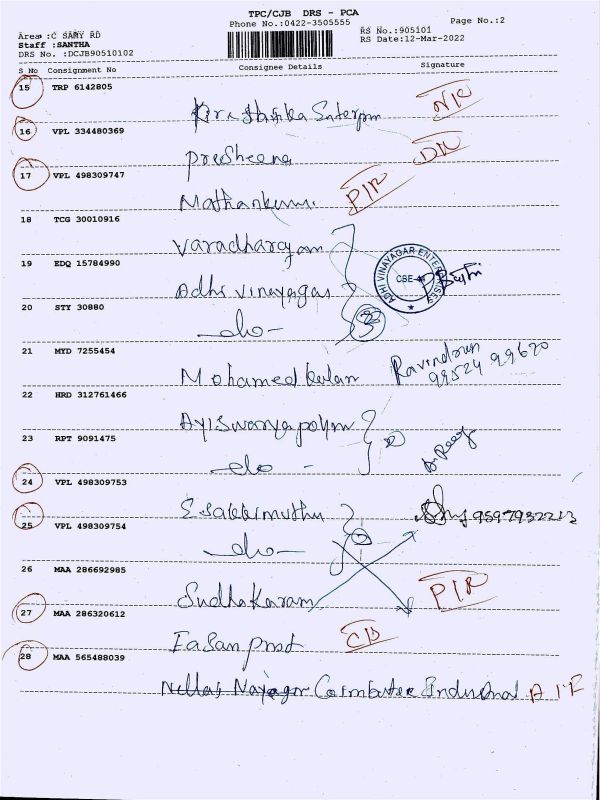 TPC/CJB DRS - PCA
Phone No.:0422-3505555
Page No.:2
Area :C SAMY RD
RS No.:905101
Staff :SANTHA
RS Date:12-Mar-2022
DRS No. :DCJB90510102
S No Consignment No Consignee Details Signature
15 TRP 6142805
Enterprn
16 VPL 334480369
Preesheena
17 VPL 498309747
Mathankumr
18 TCG 30010916
Varadharajan
19 EDQ 15784990
Adhi Vinayagar
ADHI VINAYAGAR ENTERPRISES
CBE-44
20 STY 30880
-do-
3
21 MYD 7255454
Mohamed Kulan
Ravindran
99524 99620
22 HRD 312761466
Ayiswarya polym
23 RPT 9091475
-do-
24 VPL 498309753
Esakkimuthu
9597932212
25 VPL 498309754
-do-
26 MAA 286692985
Sudhakaram
27 MAA 286320612
Easan prod
28 MAA 565488039
Nellai Nayagar Coimbatore Industrial